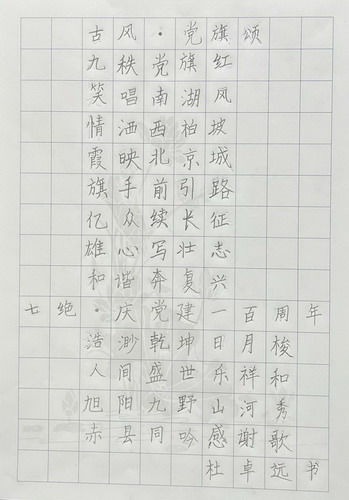 古风·党旗颂
九秩党旗红
笑唱南湖风
情洒西柏坡
霞映北京城
旗手前引路
亿众续长征
雄心写壮志
和谐奔复兴
七绝·庆党建一百周年
浩渺乾坤日月梭
人间盛世乐祥和
旭阳九野山河秀
赤县同吟感谢歌
杜卓远书